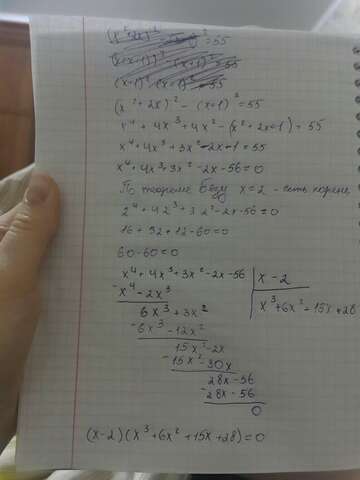 (x²+2x)² - (x+1)² = 55
x⁴ + 4x³ + 4x² - (x² + 2x + 1) = 55
x⁴ + 4x³ + 3x² - 2x - 1 = 55
x⁴ + 4x³ + 3x² - 2x - 56 = 0
По теореме Безу x = 2 - есть корень
2⁴ + 4·2³ + 3·2² - 2x - 56 = 0
16 + 32 + 12 - 60 = 0
60 - 60 = 0
x⁴ + 4x³ + 3x² - 2x - 56 | x - 2
- x⁴ - 2x³ | x³ + 6x² + 15x + 28
6x³ + 3x²
- 6x³ - 12x²
15x² - 2x
- 15x² - 30x
28x - 56
- 28x - 56
0
(x-2)(x³ + 6x² + 15x + 28) = 0